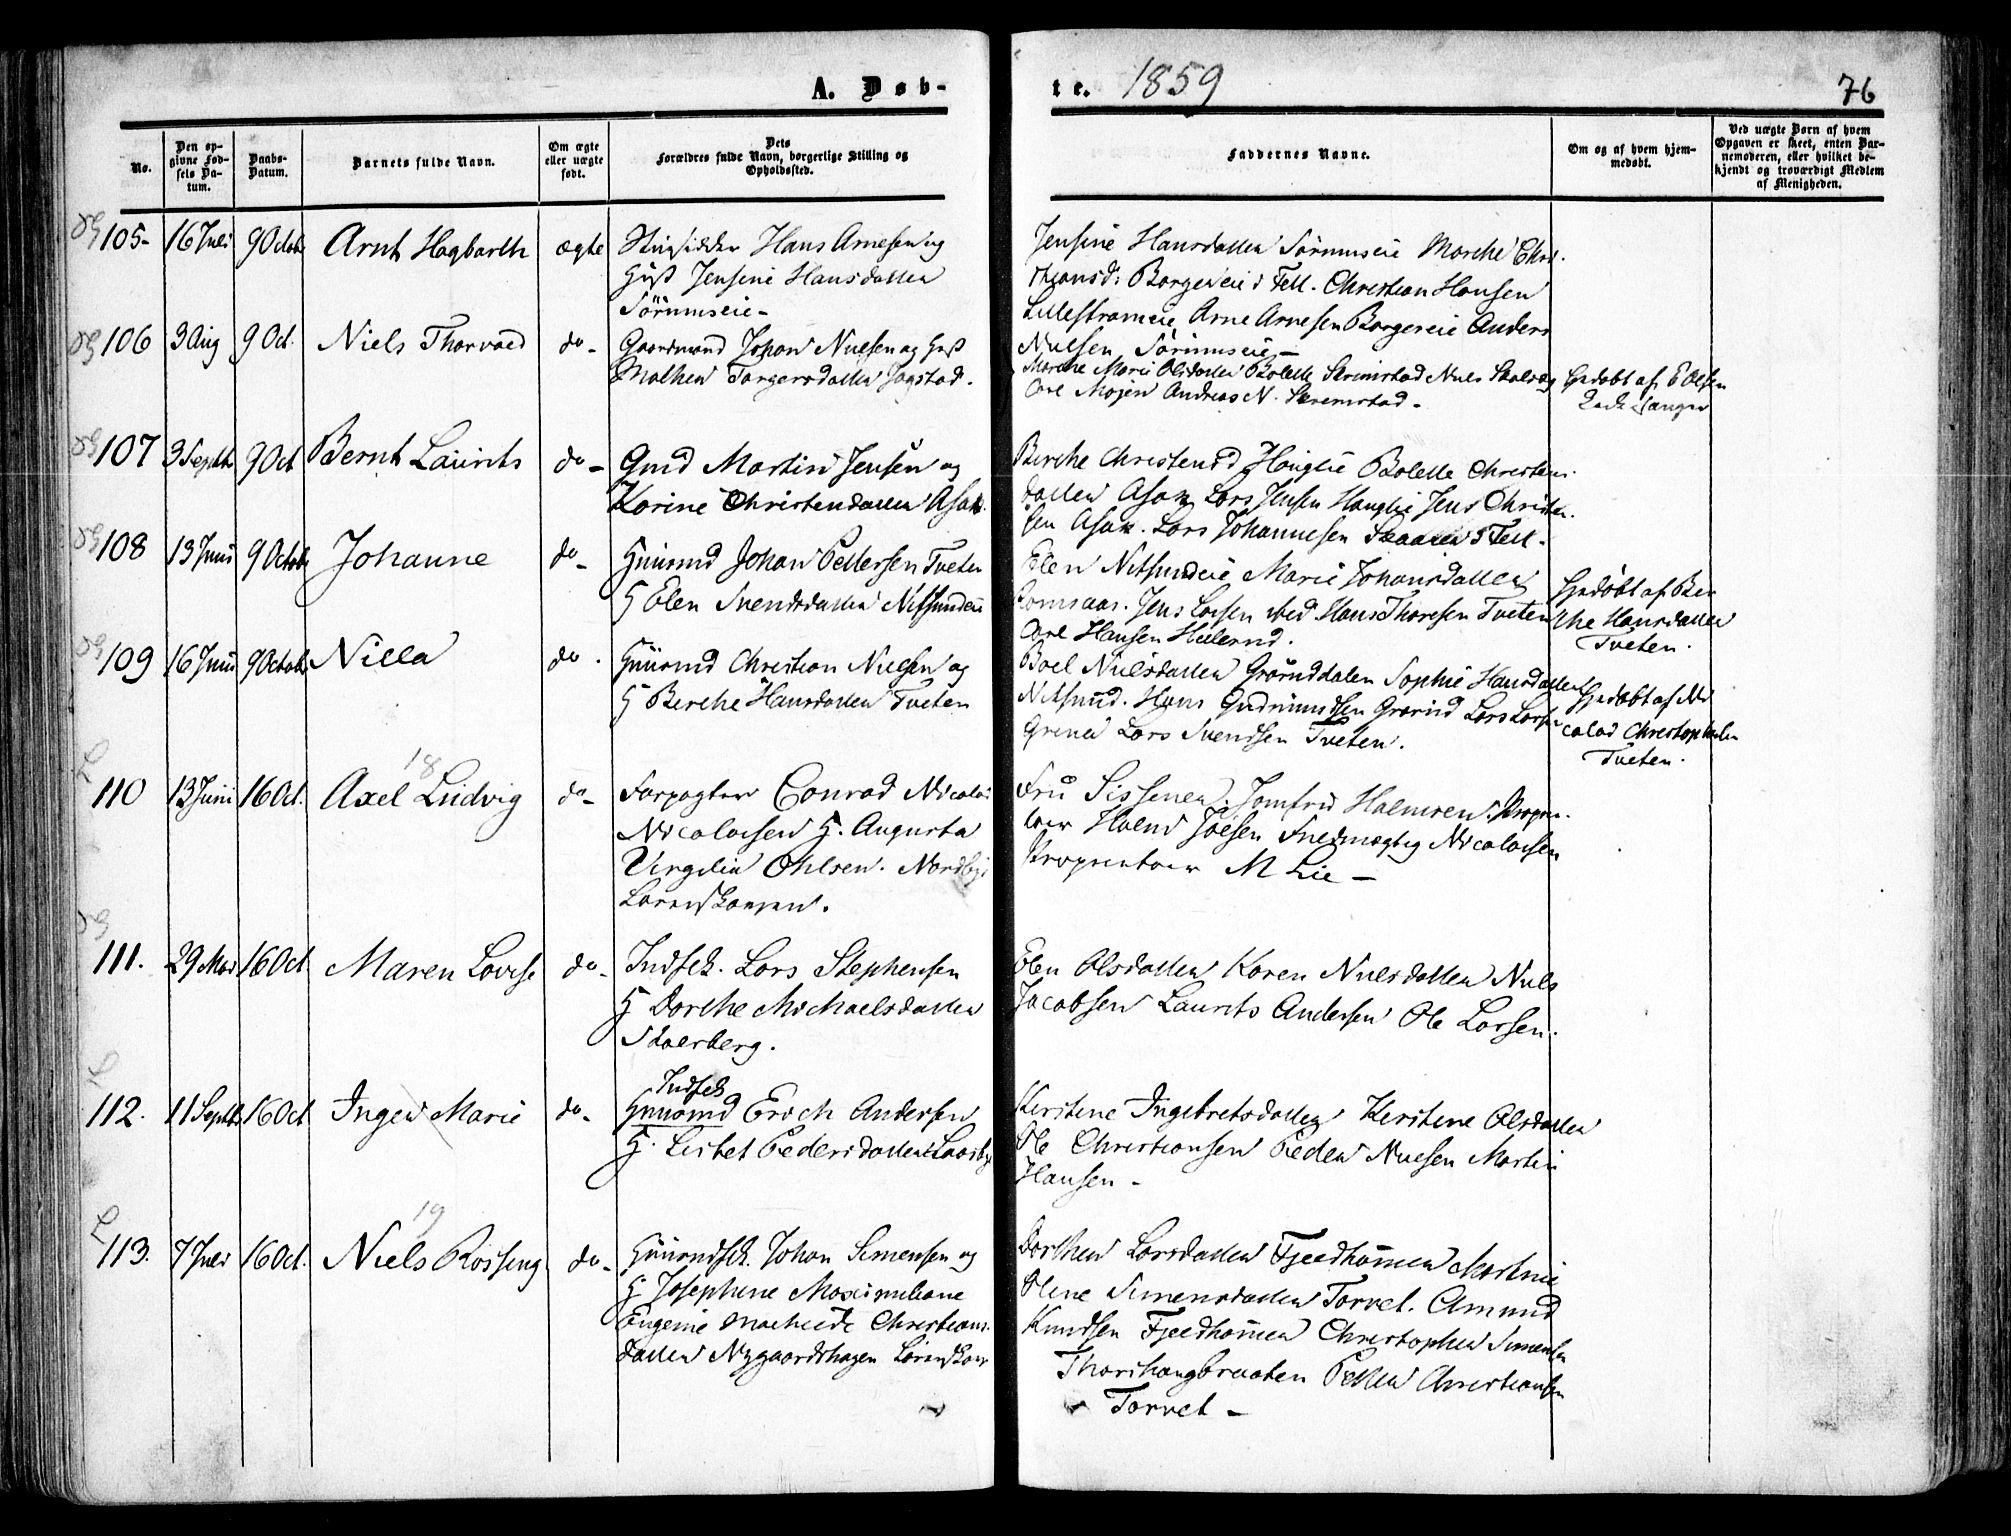 A. Døb-
te. 1859
76
No.
Den op-
givne Fød-
sels Da-
tum.
Daabs-
Datum.
Barnets fulde Navn.
Om ægte
eller uægte
født.
Dets
Forældres fulde Navn, borgerlige Stilling og
Opholdssted.
Faddernes Navne.
Om og af hvem hjem-
medøbt.
Ved uægte Børn af hvem
Opgaven er skeet, enten Bar-
nemoderen, eller hvilket be-
kjendt og troværdigt Medlem
af Menigheden.
105- 16 Juli 9 Octob Arnt Hagbarth ægte
Hans Arnesen og
Jensine Hansdatter
Sørumseie-
Jensine Hansdatter Sørumseie Marthe Chri.
stiansd: Borgereie i Fetl. Christian Hansen
Lillestrømeie Arne Arnesen Borgereie Anders
Nielsen Sørumseie-
106 3 Aug 9 Oct. Niels Thorvald do-
Gaardmand Johan Nielsen og
Mathea Torgersdatter Jogstad.
Marthe Marie Olsdatter Bolette Skrimstad Niels
Carl Mojer Andreas N. Skremstad-
Hjedøbt af E Olsen
107 3 Septb 9 Oct Bernt Laurits do-
Gmd Martin Jensen og
Karine Christensdatter Asak.
Berthe Christensd Hauglie Bolette Christens.
datter Asak Lars Jensen Hauglie Jens Christen.
sen Asak. Lars Johannesen i Fetl-
108 13 Juni 9 Octob Johanne do-
Huusmd Johan Pettersen Tveten
H Elen Svendsdatter Nitsundeie
Elen Nitsundeie Marie Johansdatter
Romsaas. Jens Larsen ibed Hans Thoresen Tveten
Carl Hansen
Hjedøbt af Ber
the Hansdatter
Tveten.
109 16 Juni 9 Octob Nilla do.
Huusmd Christian Nielsen og
H Berthe Hansdatter Tveten
Boel Nielsdatter Sophie Hansdatter
Nitsund. Hans Gudmundsen Lars Larsen
Lars Svendsen Tveten.
Hjedøbt af Ni
colai Christophersen
Tveten.
18
110 13 Juni 16 Oct. Axel Ludvig do-
Forpagter Conrad Nicolai
Nicolaisen H. Augusta
Virgilia Ohlsen. Nordbye
Lørenskougen.
Fru Sissener. Jomfru Halmren. Propri-
tær Fuldmægtig Nicolaisen
Proprietær M Lie-
111. 29 Mai 16 Oct Maren Lovise do-
Indsck. Lars Stephensen
H Dorthe Michaelsdatter
Skaerberg.
Elen Olsdatter Karen Nielsdatter Niels
Jacobsen Laurits Andersen Ole Larsen.
112. 11 Septb 16 Oct Inger Marie do-
Indsck
Huusmd Erich Andersen
H. Lisbet Pedersdatter
Kerstine Ingebretsdatter Kerstine Olsdatter
Ole Christiansen Peder Nielsen Martin
Hansen-
19
113. 7 Juli 16 Oct. Niels Rossing do-
Huusmdsck. Johan Simensen og
H Josephine Maximiliane
Eugenie Mathilde Christians.
datter Nygaardshagen Lørenskou
Dorthea Larsdatter Fjeldhammer Martine
Oline Simensdatter Torvet. Amund
Knudsen Fjeldhammer Christopher Simensen
Thorshaugbraaten Petter Christiansen
Torvet-